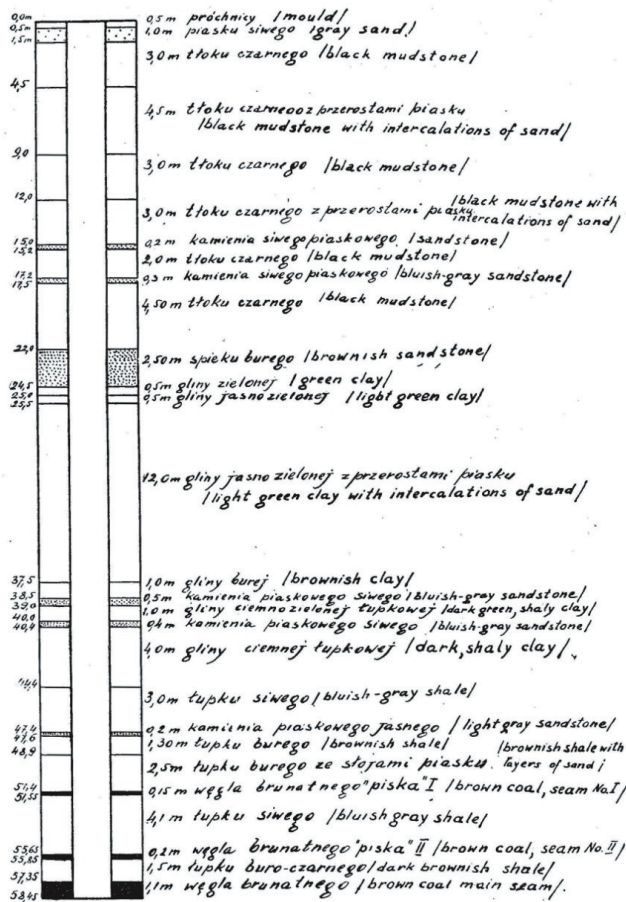 0,0m
0,5m próchnicy /mould/
0,5m
1,0m piasku siwego /gray sand/
1,5m
3,0m tłoku czarnego /black mudstone/
4,5
4,5m tłoku czarnego z przerostami piasku
/black mudstone with intercalations of sand/
9,0
3,0m tłoku czarnego /black mudstone/
12,0
3,0m tłoku czarnego z przerostami piasku /black mudstone with
intercalations of sand/
15,0
0,2m kamienia siwego piaskowego /sandstone/
15,2
2,0m tłoku czarnego /black mudstone/
17,2
0,3m kamienia siwego piaskowego /bluish-gray sandstone/
17,5
4,50m tłoku czarnego /black mudstone/
22,0
2,50m spieku burego /brownish sandstone/
24,5
0,5m gliny zielonej /green clay/
25,0
0,5m gliny jasno zielonej /light green clay/
25,5
12,0m gliny jasno zielonej z przerostami piasku
/light green clay with intercalations of sand/
37,5
1,0m gliny burej /brownish clay/
38,5
0,5m kamienia piaskowego siwego /bluish-gray sandstone/
39,0
1,0m gliny ciemno zielonej łupkowej /dark green, shaly clay/
40,0
0,4m kamienia piaskowego siwego /bluish-gray sandstone/
40,4
4,0m gliny ciemnej łupkowej /dark, shaly clay/
44,4
3,0m łupku siwego /bluish-gray shale/
47,4
0,2m kamienia piaskowego jasnego /light gray sandstone/
47,6
1,30m łupku burego /brownish shale/
48,9
2,5m łupku burego ze słojami piasku /brownish shale with
layers of sand/
51,4
0,15m węgla brunatnego "piska" I /brown coal, seam No.I/
51,55
4,1m łupku siwego /bluish gray shale/
55,65
0,2m węgla brunatnego "piska" II /brown coal, seam No.II/
55,85
1,5m łupku buro-czarnego /dark brownish shale/
57,35
1,1m węgla brunatnego /brown coal main seam/.
58,45